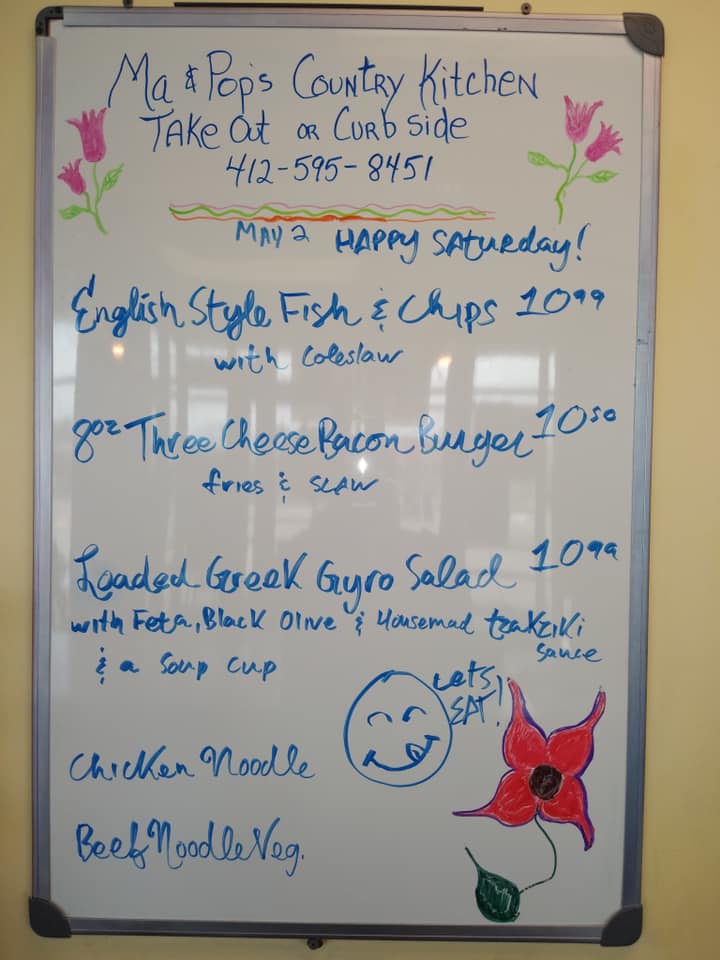 Ma & Pop's Country Kitchen
Take Out or Curbside
412-595-8451
May 2 Happy Saturday!
English Style Fish & Chips 10 99
with Coleslaw
8oz Three Cheese Bacon Burger 10 50
fries & Slaw
Loaded Greek Gyro Salad 10 99
with Feta, Black Olive & Housemad tzakziki
sauce
& a Soup Cup
Lets
EAT!
Chicken Noodle
Beef Noodle Veg.